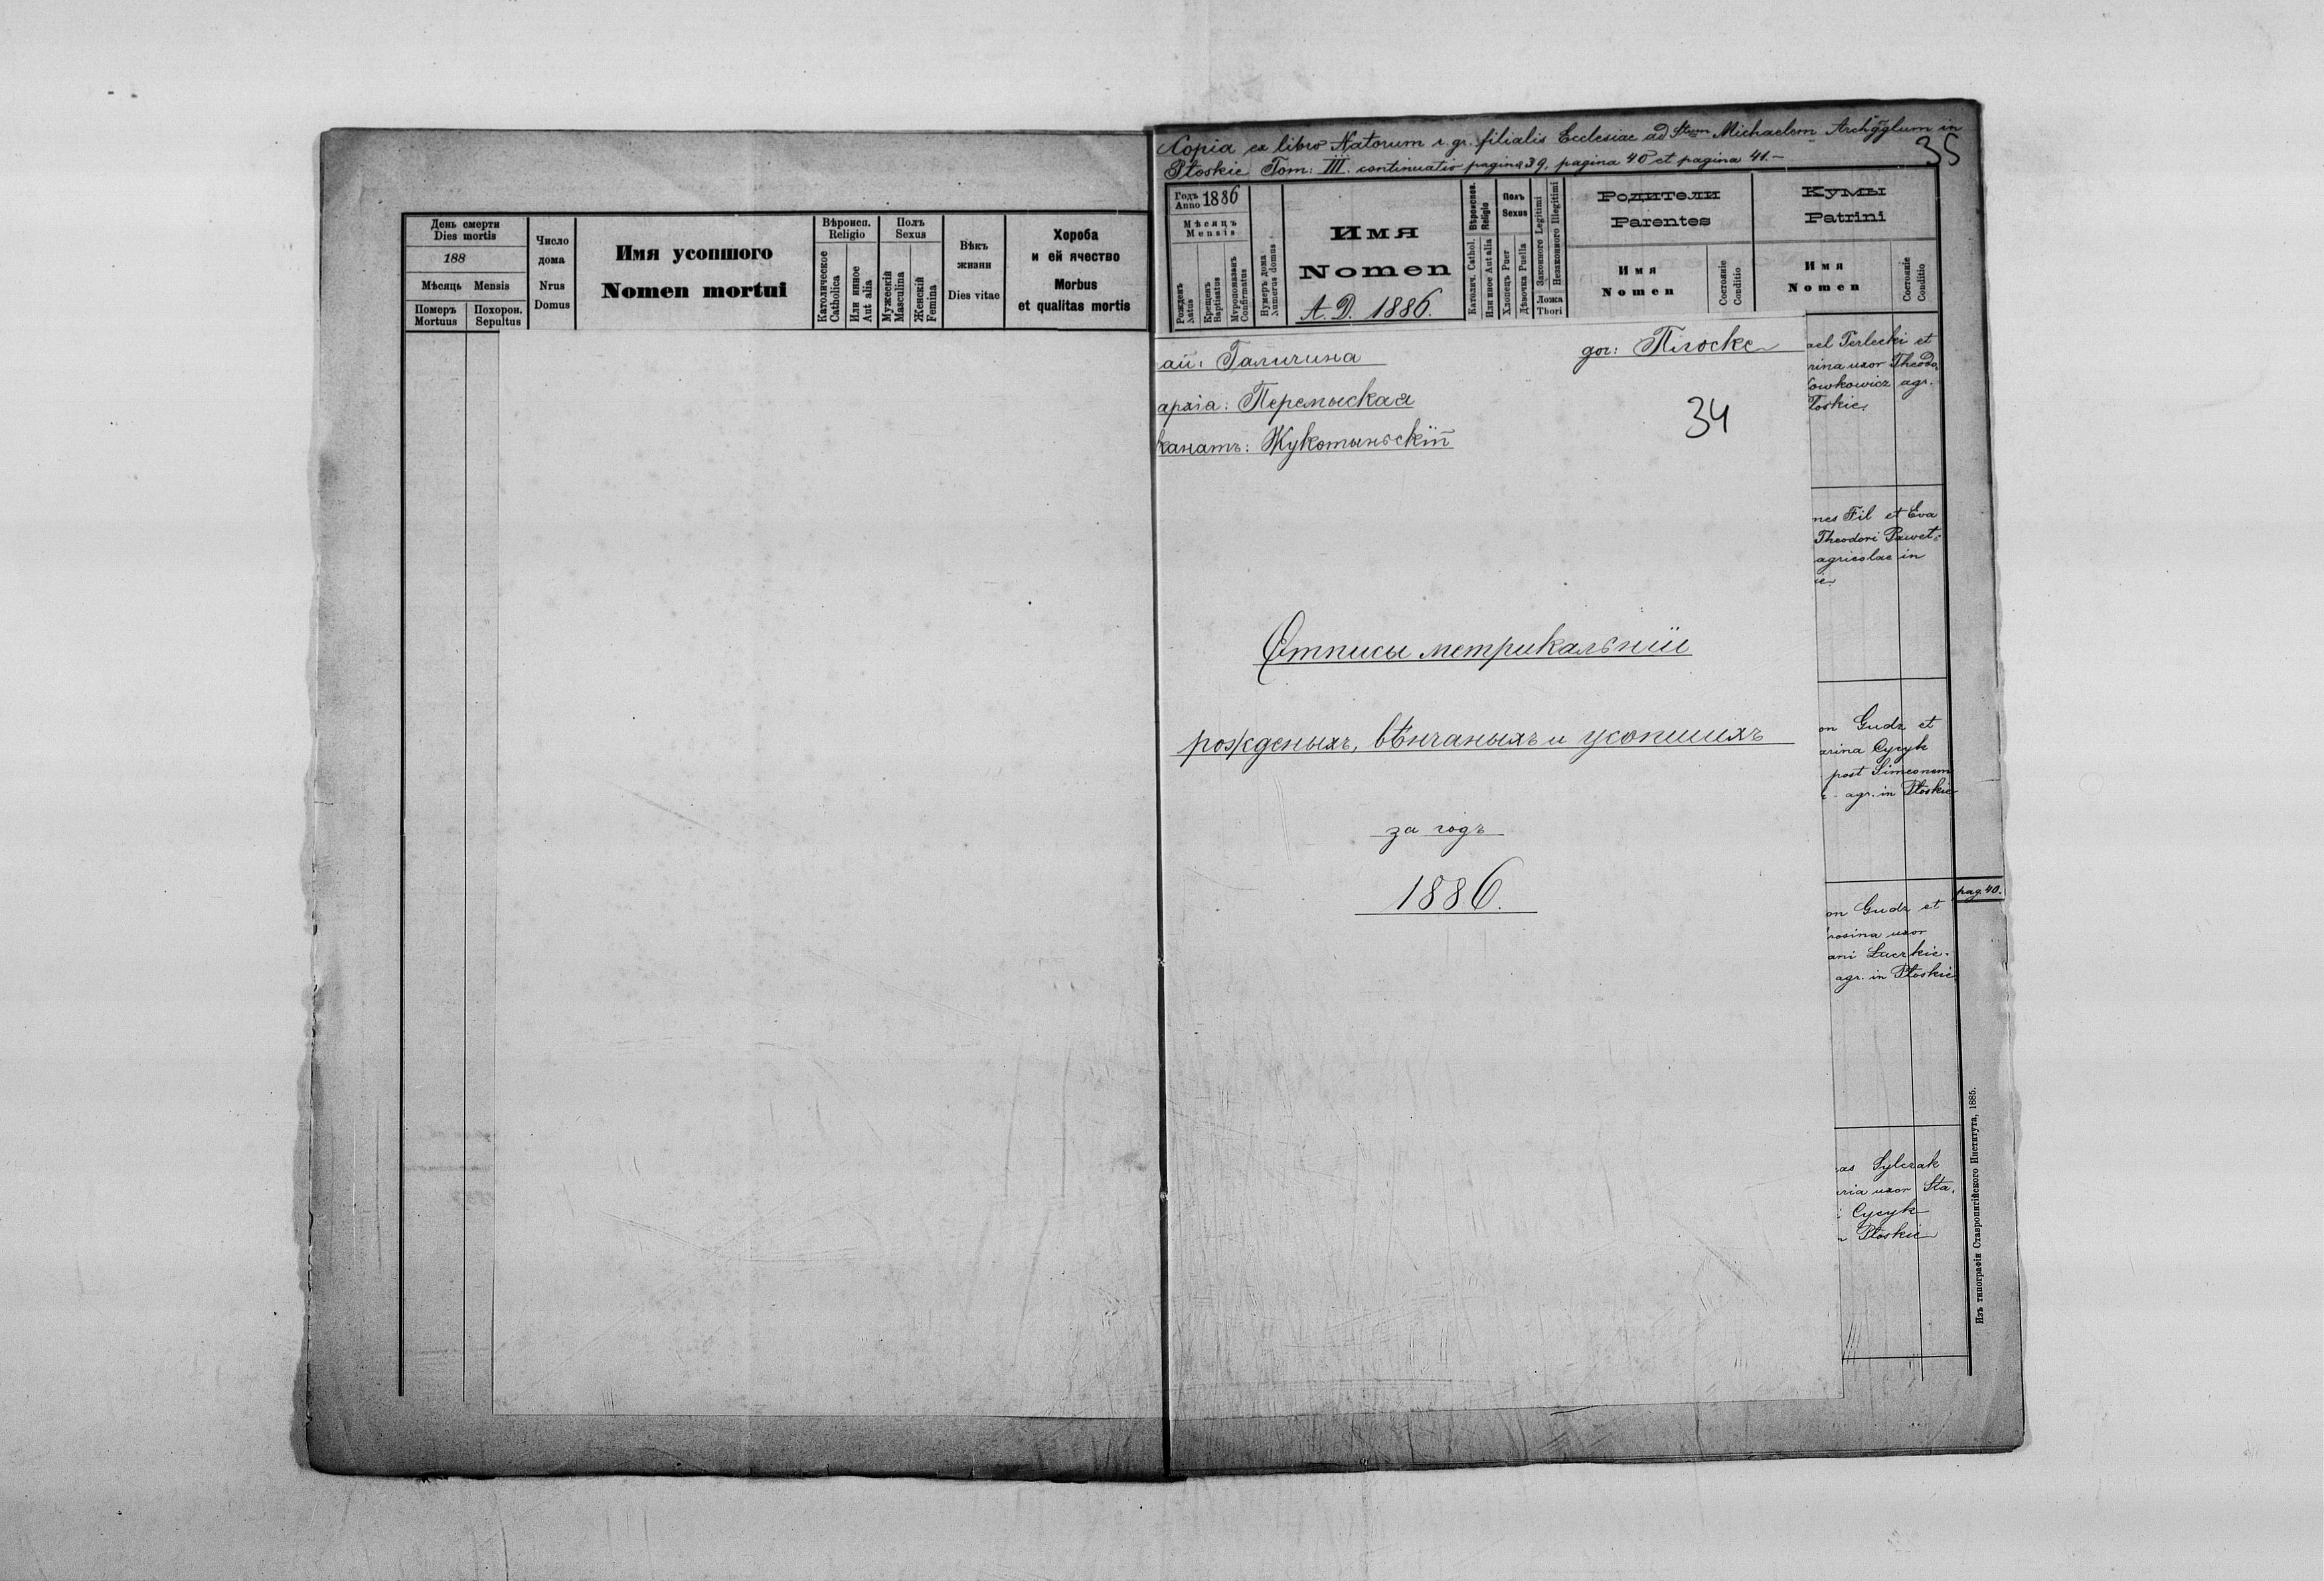 День смерти
Dies mortis
188
Мѣсяць Mensis
Померъ
Mortuus
Похорон.
Sepultus
Число
дома
Nrus
Domus
Имя усопшого
Nomen mortui
Вѣроисп.
Religio
Католическое
Catholica
Или инное
Aut alia
Полъ
Sexus
Мужескій
Masculina
Женскій
Femina
Вѣкъ
жизни
Dies vitae
Хороба
и ей ячество
Morbus
et qualitas mortis
Copia ex libro Natorum r. gr. filialis Ecclesiae ad Stum Michaelem Archgglum in
Płoskie Tom: III. continuatio pagina 39. pagina 40 et pagina 41.-
35
Годъ
Anno 1886
Мѣсяцъ
Mensis
Рожденъ
Natus
Крещенъ
Baptisatus
Мvропомазанъ
Confirmatus
Нумеръ дома
Numerus domus
Имя
Nomen
A. D. 1886.
Вѣроиспов.
Religio
Католич. Cathol.
Или иное Aut alia
Полъ
Sexus
Хлопецъ Puer
Дѣвочка Puella
Законного Legitimi
Незаконного Illegitimi
Ложа
Thori
Родители
Parentes
Имя
Nomen
Состояніе
Conditio
Кумы
Patrini
Имя
Nomen
Состояніе
Conditio
ай: Галичина
дог: Плоске
архіа: Перемыская
канатъ: Жукотыньскій
34
Отписы метрикальніи
рожденыхъ, вѣнчаныхъ и усопшихъ
за годъ
1886.
ael Terlecki et
rina uxor Theodo
owkowicz agr.
Płoskie.
nes Fil et Eva
Theodori Paweł-
agricolae in
ie.
on Gudz et
arina Cycyk
post Simeonem
agr. in Płoskie
pag. 40.
on Gudz et
rosina uxor
ani Łuczkie-
agr. in Płoskie.
as Sylczak
ria uxor Sta-
i Cycyk
n Płoskie
Изъ типографіи Ставропигійского Института, 1885.